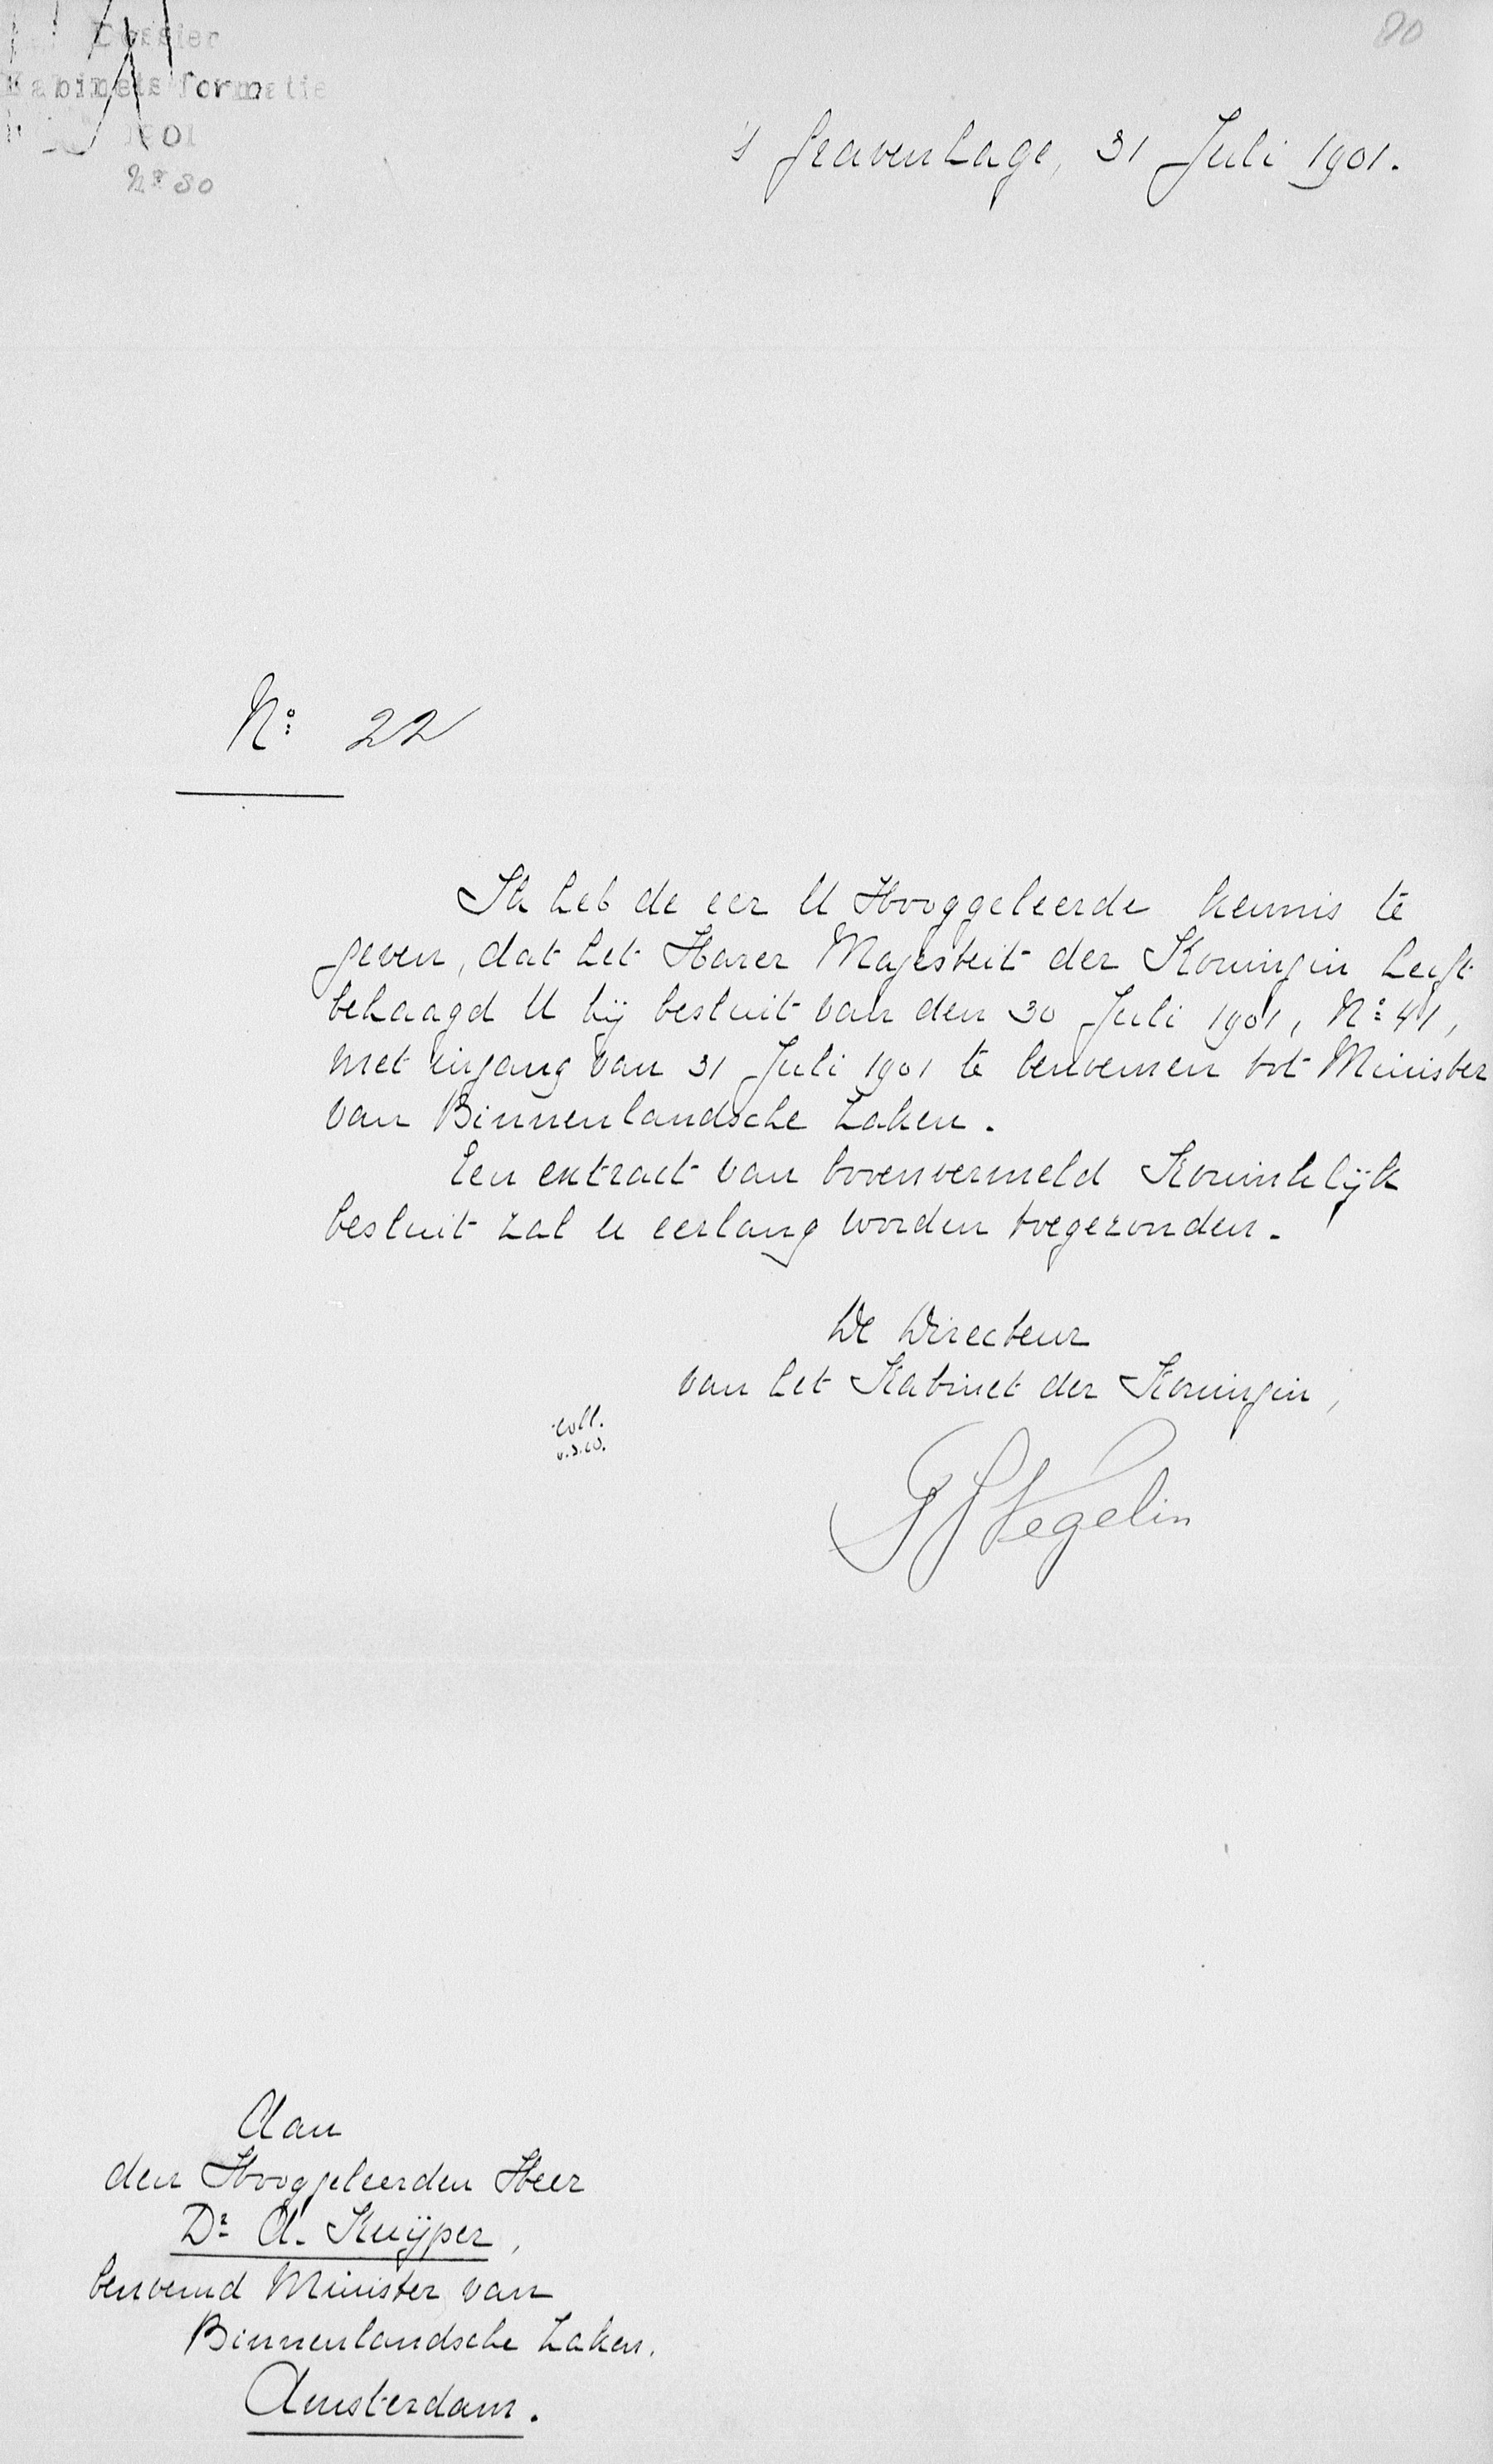 80
Dossier
Kabinetsformatie
1901
No 80
's Gravenhage, 31 Juli 1901.
No: 22
Ik heb de eer U Hooggeleerde kennis te
geven, dat het Harer Majesteit der Koningin heeft
behaagd U bij besluit van den 30 Juli 1901, No: 41,
met ingang van 31 Juli 1901 te benoemen tot Minister
van Binnenlandsche Zaken.
Een extract van bovenvermeld Koninklijk
besluit zal u eerlang worden toegezonden.
De Directeur
van het Kabinet der Koningin,
coll.
Vegelin
Aan
den Hooggeleerden Heer
Dr. A. Kuÿper,
benoemd Minister van
Binnenlandsche Zaken.
Amsterdam.